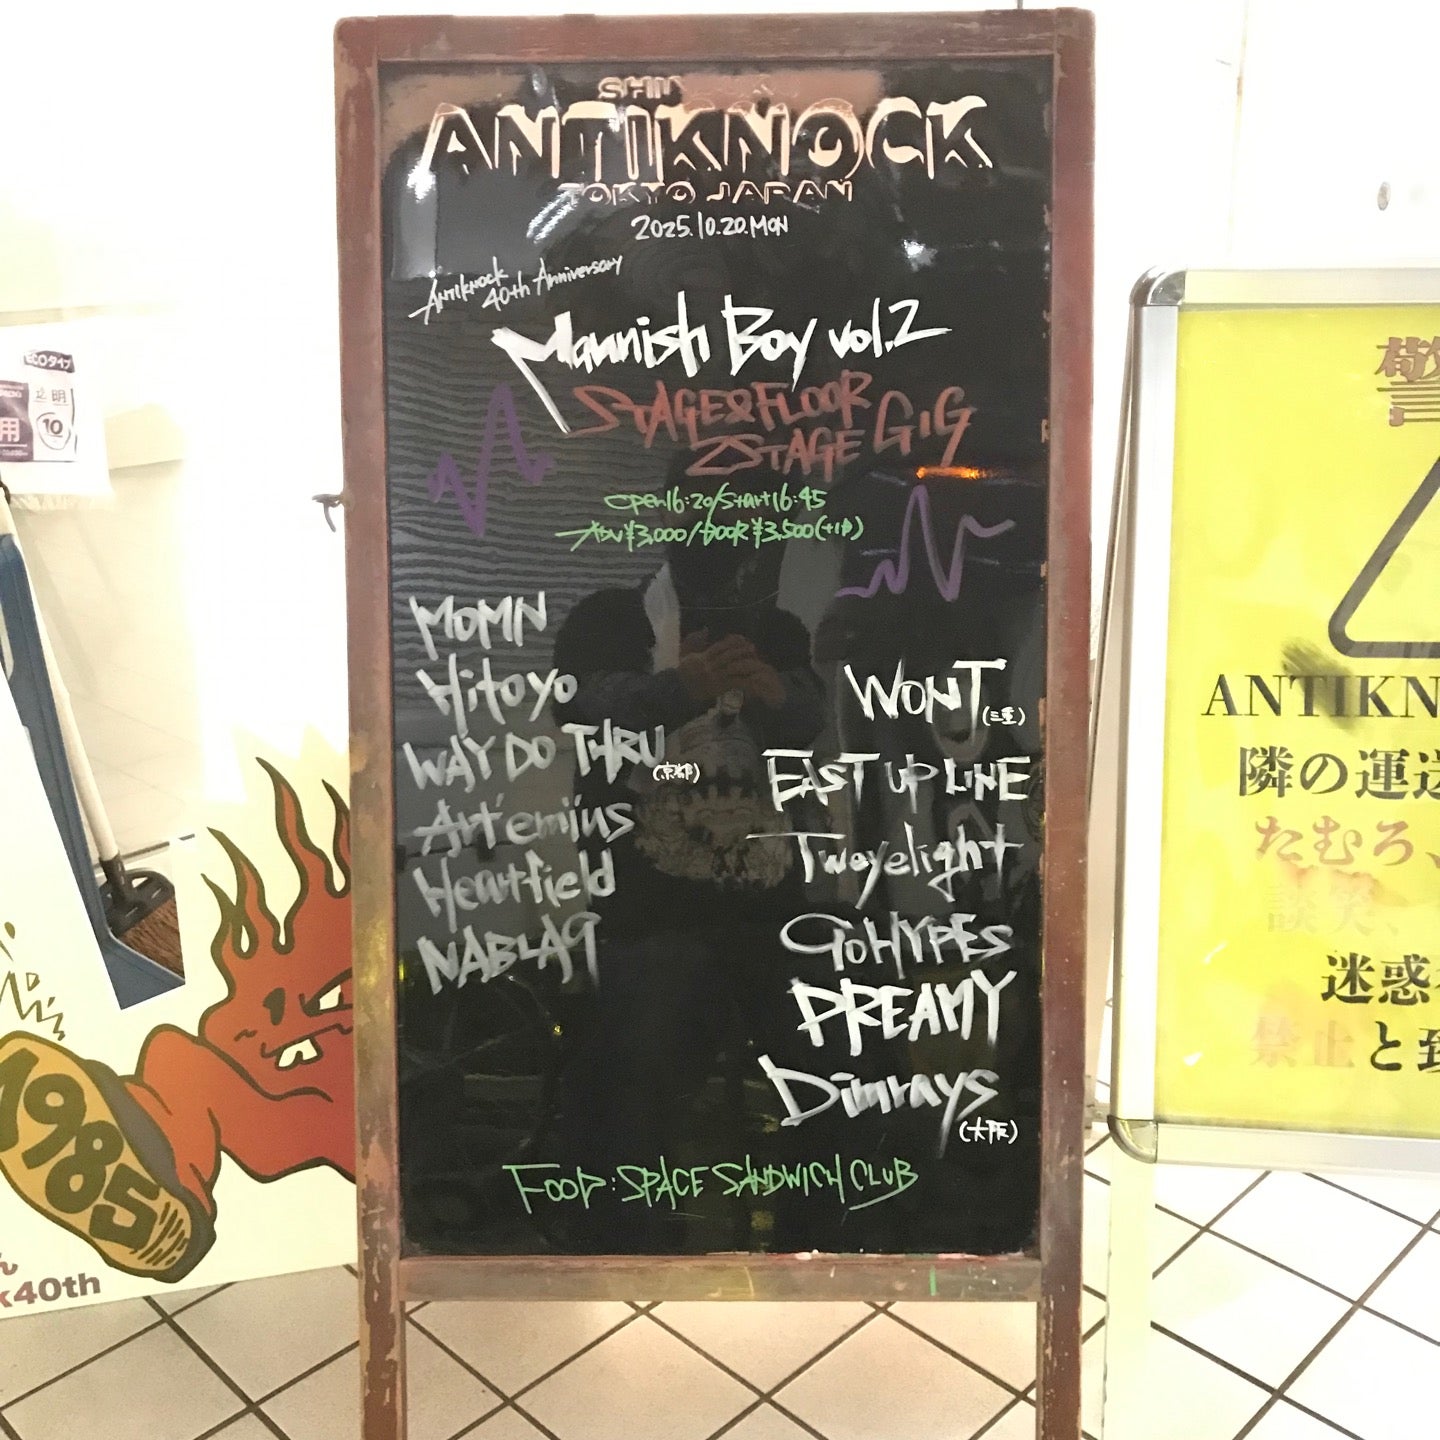 ANTIKNOCK
TOKYO JAPAN
2025.10.20.MON
ANTIKNOCK
40th Anniversary
Mannish Boy vol.2
STAGE&FLOOR
2STAGE GIG
OPEN16:20/Start16:45
ADV¥3,000/DOOR¥3,500(+1D)
MOMN
Hitoyo
WAY DO THRU
(京都)
Art'emiius
Heartfield
NABLA9
WONT
(三重)
EAST UP LINE
Twoyelight
GOHYPES
DREAMY
Dimrays
(大阪)
FOOD:SPACE SANDWICH CLUB
ECOタイプ
透明
用
10
1985
k40th
警
ANTIKN
隣の運送
たむろ、
談笑、
迷惑
禁止と致